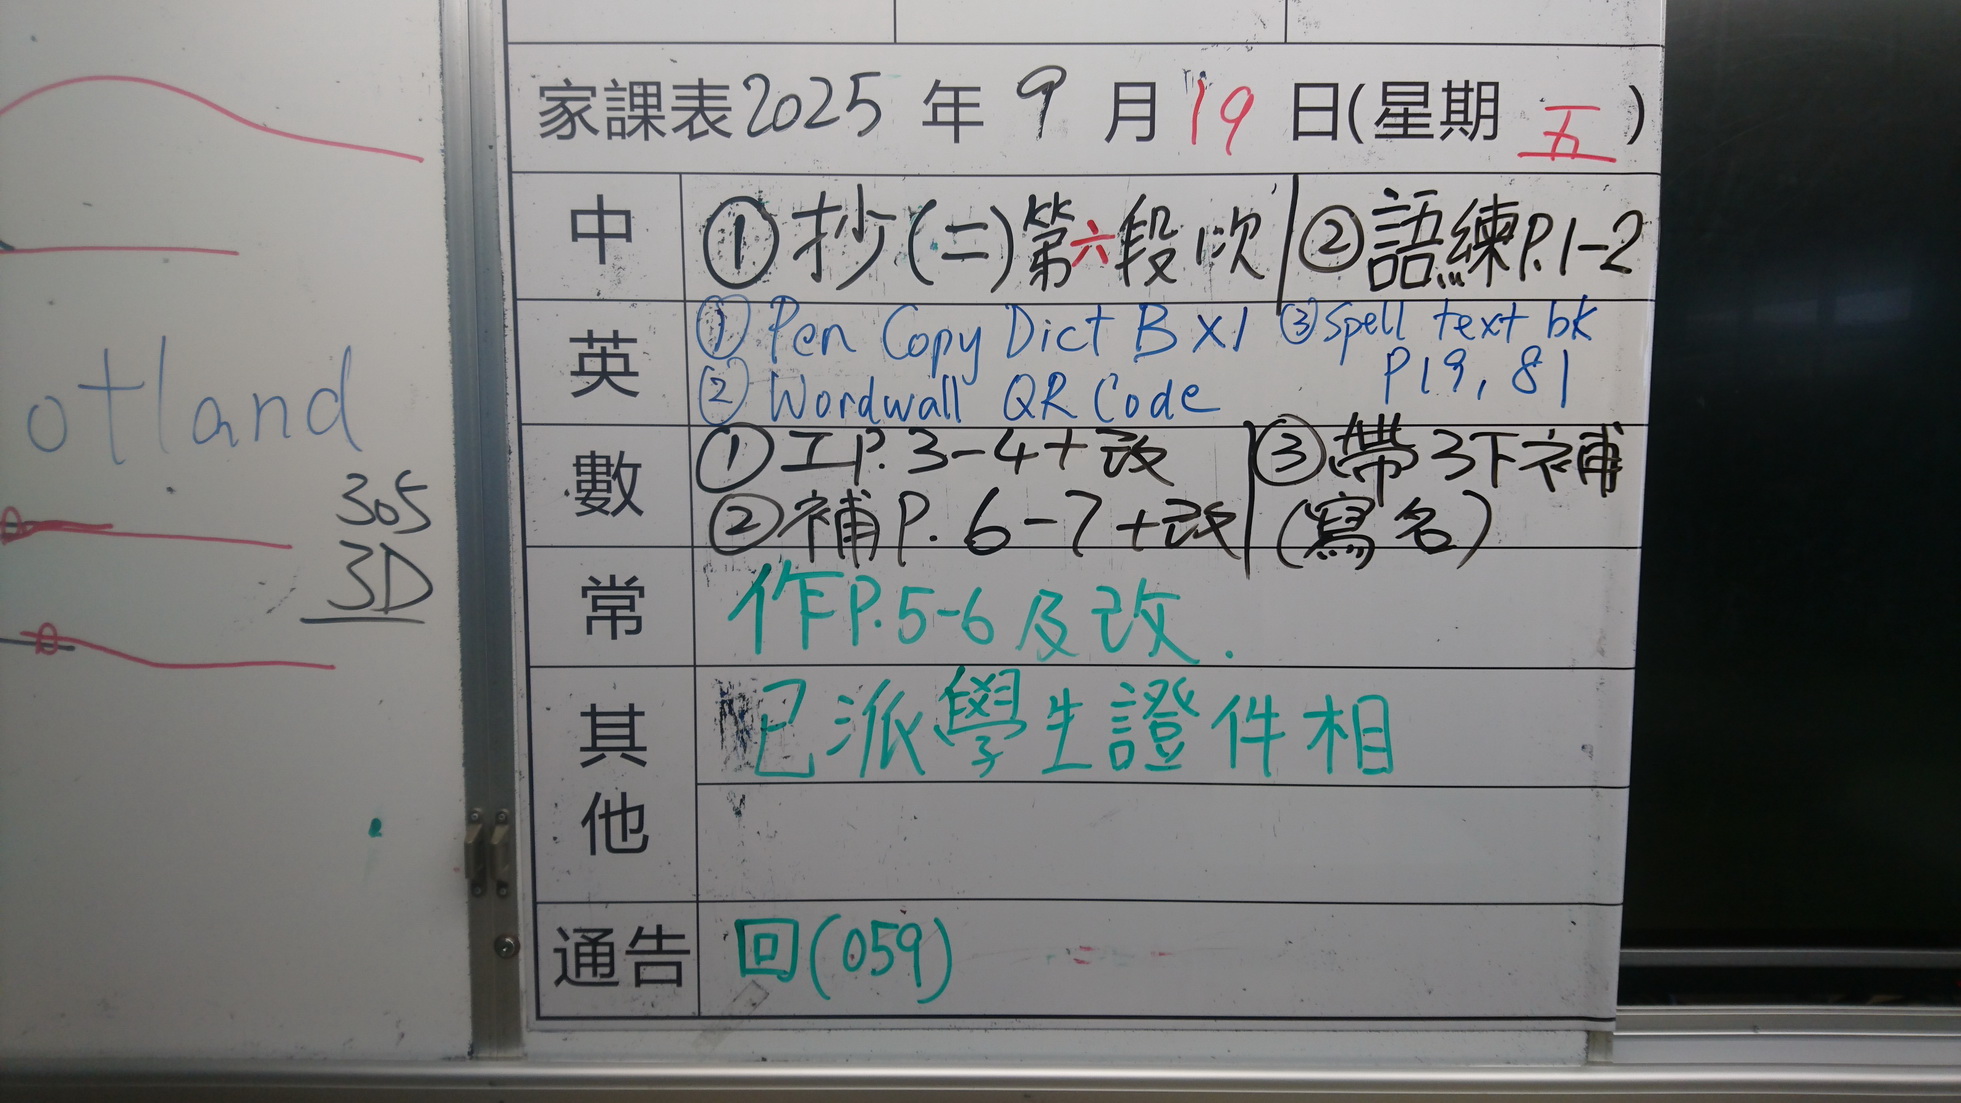 家課表 2025 年 9 月 19 日(星期 五)
中 ① 抄(二)第六段1次 ② 語練P.1-2
英 ① Pen Copy Dict B X1 ③ Spell text bk
② Wordwall QR Code P19, 81
數 ① 工P.3-4+改 ③ 帶3下補
② 補P.6-7+改 (寫名)
常 作P.5-6及改.
其他 已派學生證件相
通告 回(059)
otland
305
3D